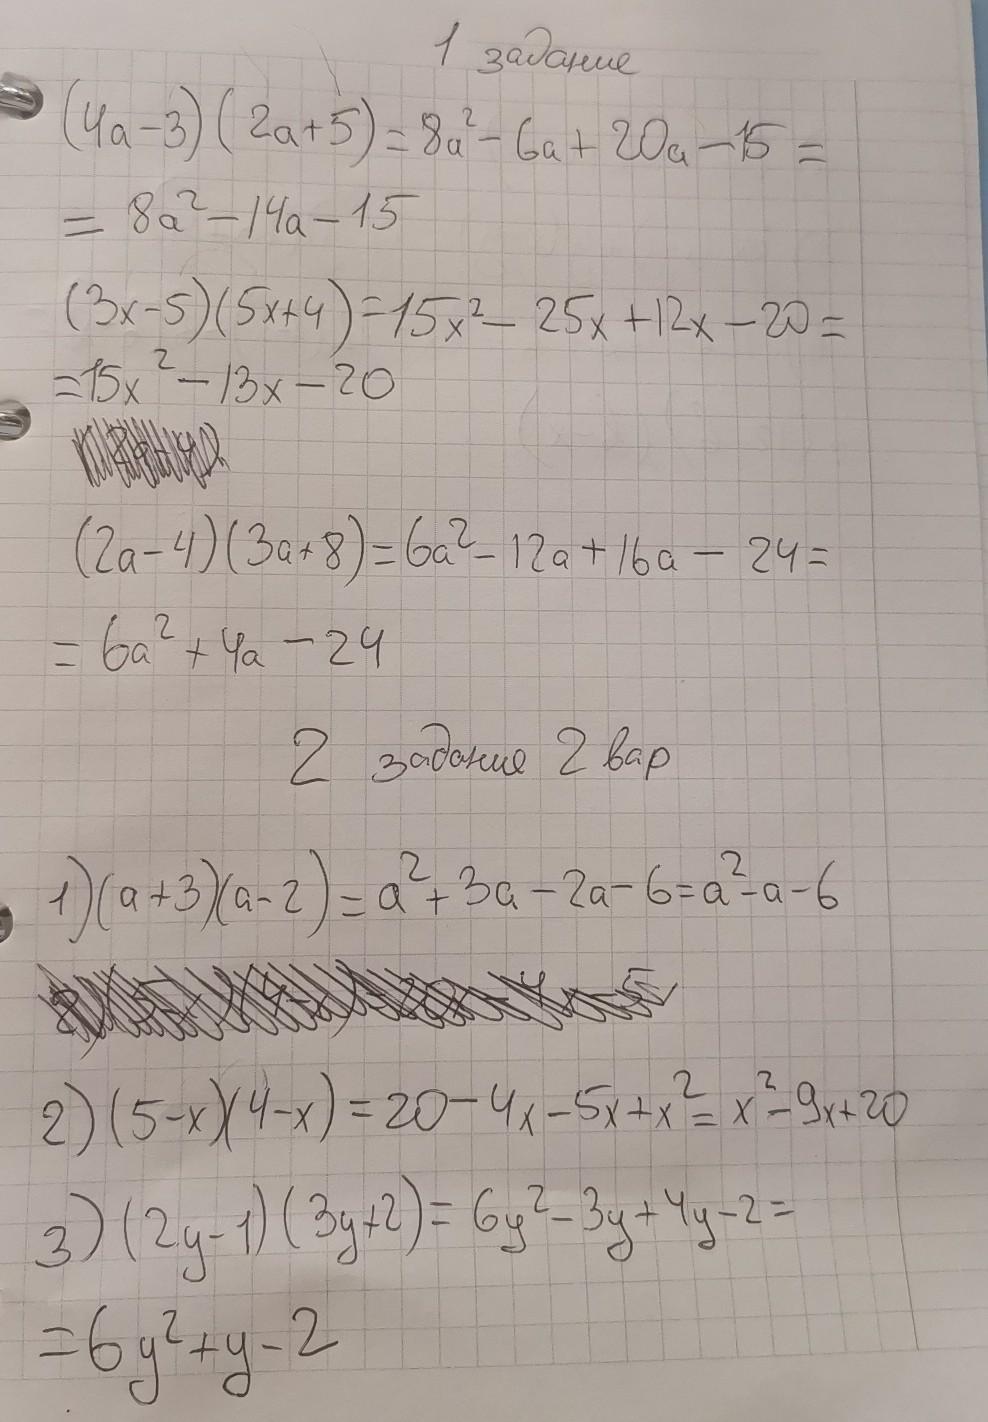 1 задание
(4a-3)(2a+5)=8a²-6a+20a-15=
=8a²-14a-15
(3x-5)(5x+4)=15x²-25x+12x-20=
=15x²-13x-20
(2a-4)(3a+8)=6a²-12a+16a-24=
=6a²+4a-24
2 задание 2 вар
1)(a+3)(a-2)=a²+3a-2a-6=a²-a-6
2)(5-x)(4-x)=20-4x-5x+x²=x²-9x+20
3)(2y-1)(3y+2)=6y²-3y+4y-2=
=6y²+y-2